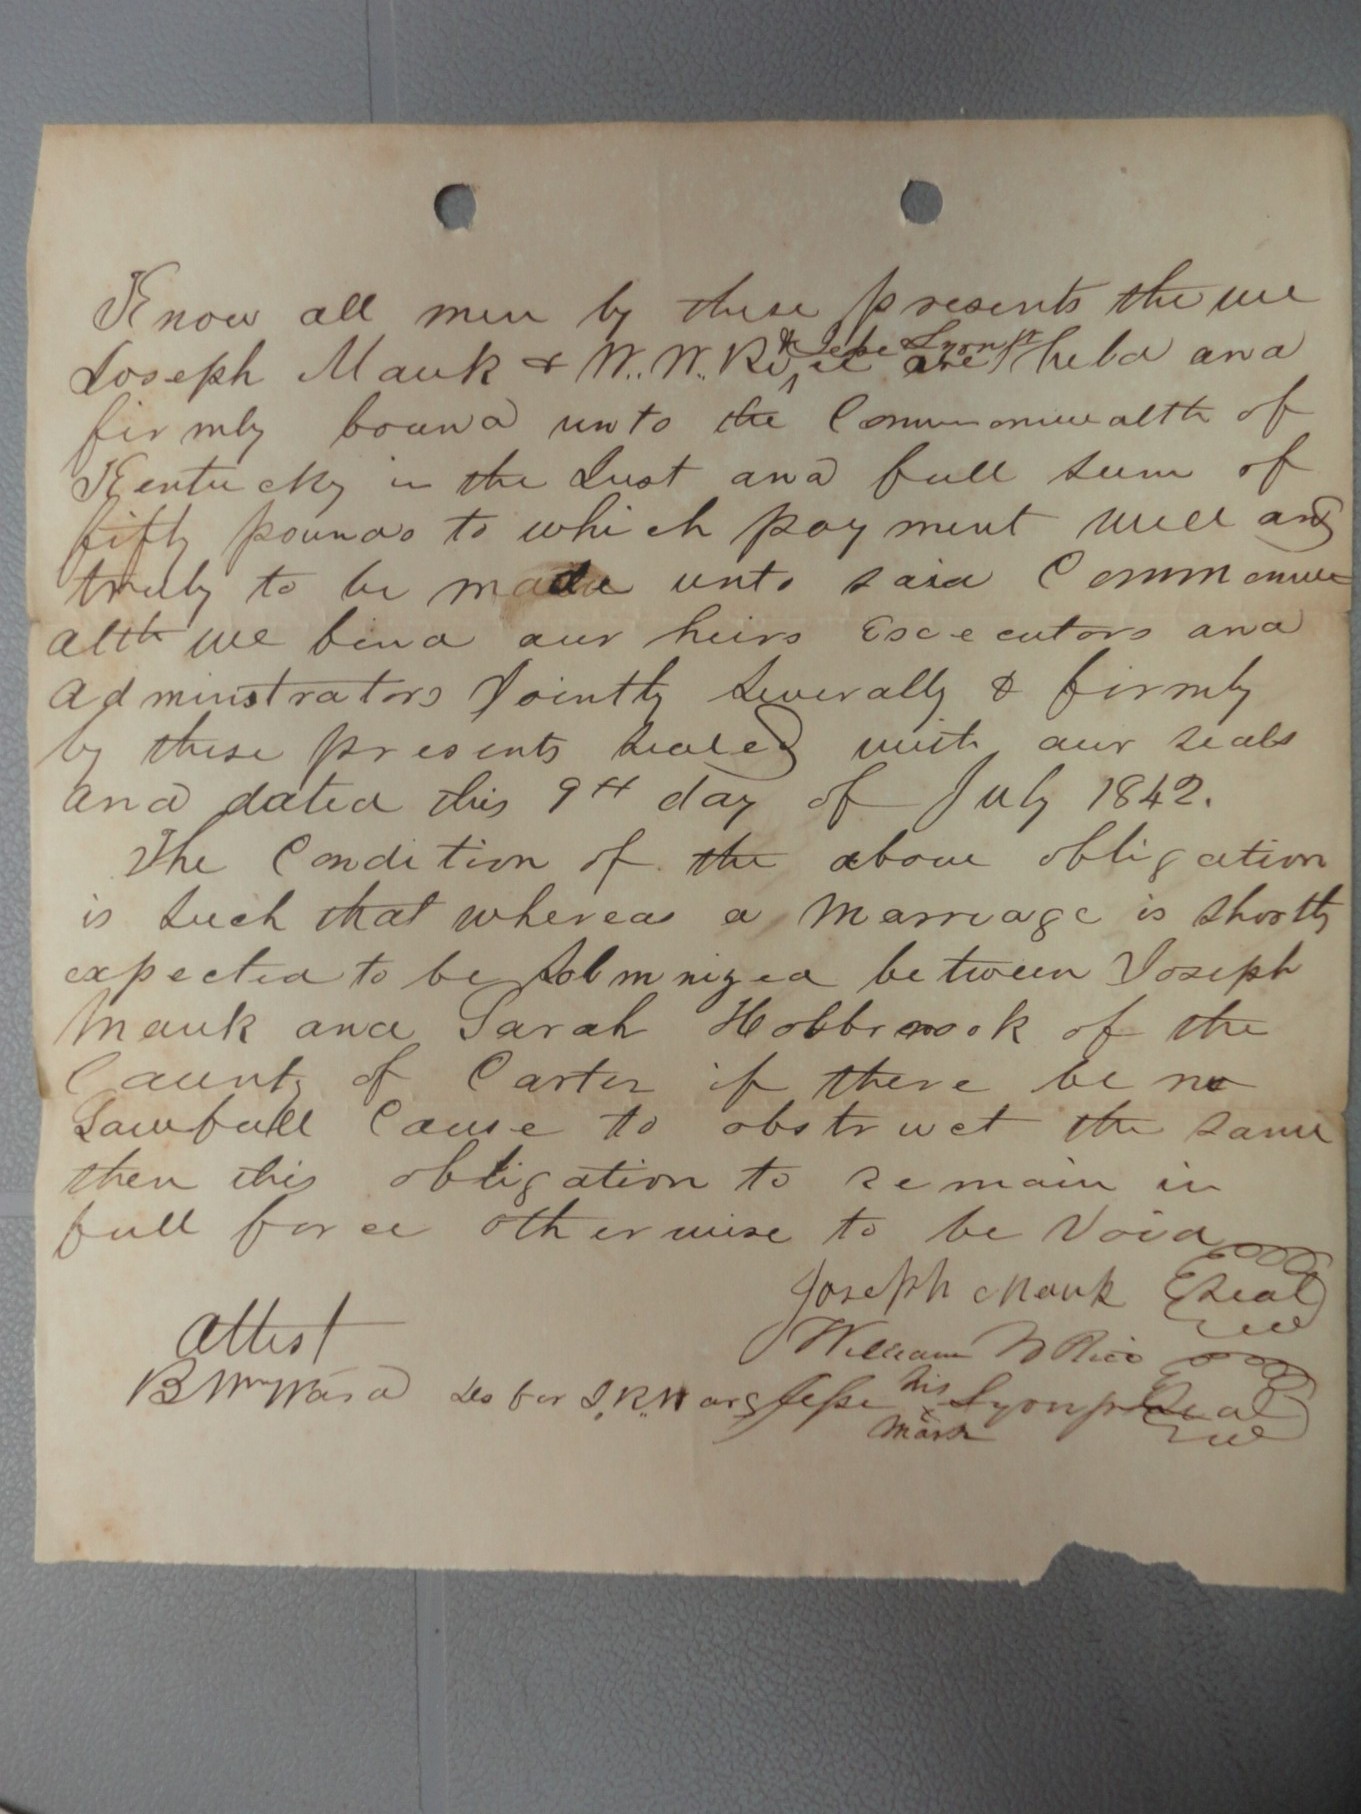 Know all men by these presents the we
Joseph Mauk & W. W. Rice & Jesse Lyons are held and
firmly bound unto the Commonwealth of
Kentucky in the Just and full sum of
fifty pounds to which payment well and
truly to be made unto said Commonwe=
alth we bind our heirs Excecutors and
adminstrators Jointly severally & firmly
by these presents sealed with our seals
and dated this 9th day of July 1842.
The Condition of the above obligation
is such that whereas a marriage is shortly
expected to be Solmnized between Joseph
Mauk and Sarah Holbrook of the
County of Carter if there be no
Lawfull Cause to obstruct the same
then this obligation to remain in
full force otherwise to be Void
Joseph Mauk Seal
Attest William W Rice
B Wm Ward for J. R. Ward Jesse his x mark Lyons Seal